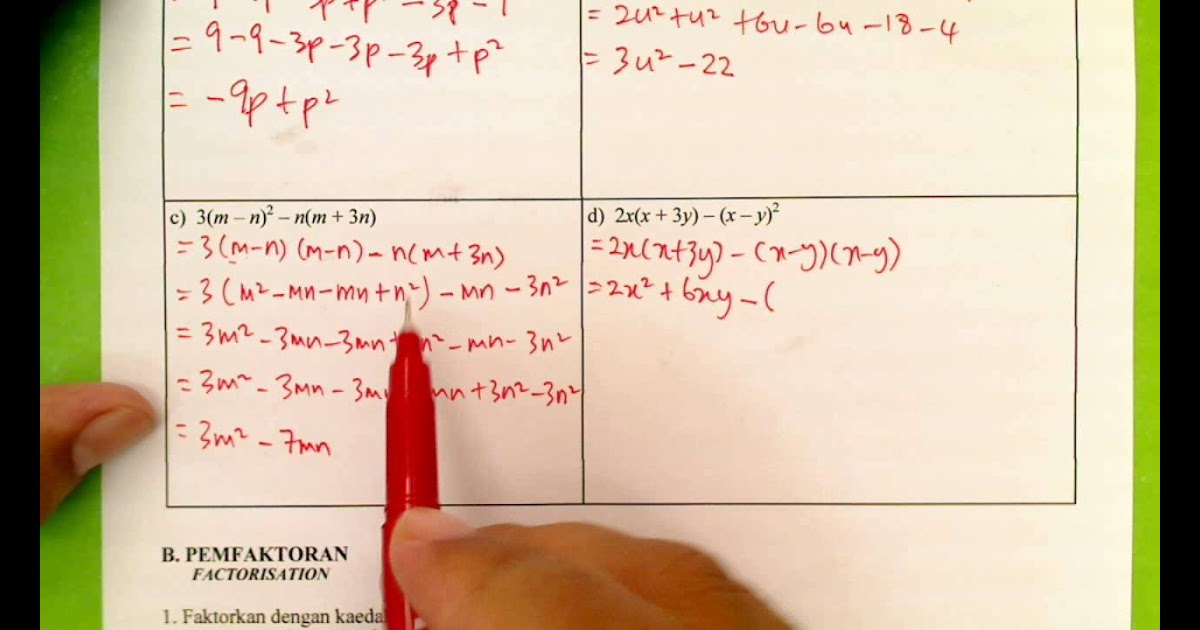 = 9 - 9 - 3p - 3p - 3p + p²
= -9p + p²
= 2u² + u² + 6u - 6u - 18 - 4
= 3u² - 22
c) 3(m – n)² – n(m + 3n)
= 3(m-n)(m-n) - n(m+3n)
= 3(m² - mn - mn + n²) - mn - 3n²
= 3m² - 3mn - 3mn n² - mn - 3n²
= 3m² - 3mn - 3m mn + 3n² - 3n²
= 3m² - 7mn
d) 2x(x + 3y) – (x – y)²
= 2x(x+3y) - (x-y)(x-y)
= 2x² + 6xy - (
B. PEMFAKTORAN
FACTORISATION
1. Faktorkan dengan